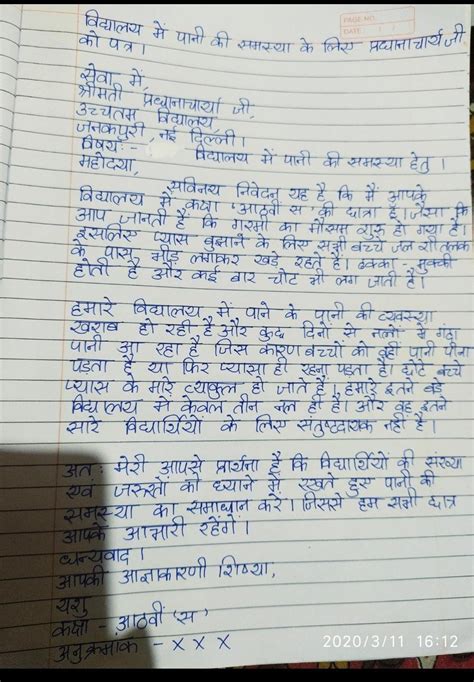 PAGE NO.
DATE
विद्यालय में पानी की समस्या के लिए प्रधानाचार्य जी
को पत्र।
सेवा में,
श्रीमती प्रधानाचार्या जी,
उच्चतम विद्यालय,
जनकपुरी, नई दिल्ली।
विषय:- विद्यालय में पानी की समस्या हेतु।
महोदया,
सविनय निवेदन यह है कि मैं आपके
विद्यालय में कक्षा 'आठवीं स' की छात्रा हूँ। जैसा कि
आप जानती हैं कि गरमी का मौसम शुरू हो गया है।
इसलिए प्यास बुझाने के लिए सभी बच्चे जल शीतलक
के पास भीड़ लगाकर खड़े रहते हैं। धक्का - मुक्की
होती है और कई बार चोट भी लग जाती है।
हमारे विद्यालय में पाने के पानी की व्यवस्था
खराब हो रही है और कुछ दिनों से नलों में गंदा
पानी आ रहा है जिस कारण बच्चों को वही पानी पीना
पड़ता है या फिर प्यासा ही रहना पड़ता है। छोटे बच्चे
प्यास के मारे व्याकुल हो जाते हैं, हमारे इतने बड़े
विद्यालय में केवल तीन नल ही हैं। और वह इतने
सारे विद्यार्थियों के लिए संतुष्टदायक नहीं है।
अत: मेरी आपसे प्रार्थना है कि विद्यार्थियों की संख्या
एवं जरूरतों को ध्यान में रखते हुए पानी की
समस्या का समाधान करें। जिससे हम सभी छात्र
आपके आभारी रहेंगें।
धन्यवाद।
आपकी आज्ञाकारणी शिष्या,
यशु
कक्षा - आठवीं 'स'
अनुक्रमांक - x x x
2020/3/11 16:12